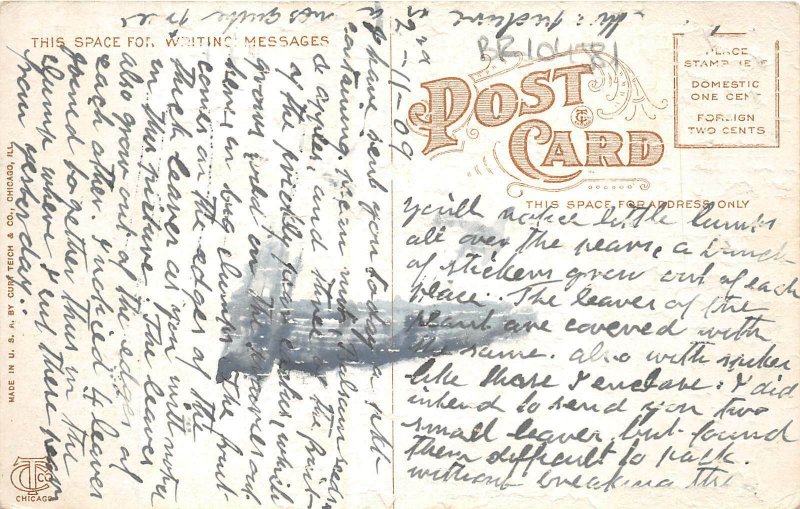 THIS SPACE FOR WRITING MESSAGES
POST CARD
THIS SPACE FOR ADDRESS ONLY
PLACE
STAMP HERE
DOMESTIC
ONE CENT
FOREIGN
TWO CENTS
MADE IN U. S. A. BY CURT TEICH & CO., CHICAGO, ILL.
CTCo
CHICAGO
BR104981
2-11-09
I have sent you today a
containing. Resin nuts, Balsam seeds
& apples, and three of the fruit
of the prickly pear cactus, which
grows wild on the
here, in big clumps. The fruit
comes on the edges of the
thick leaves as you will notice
in this picture. The leaves
also grow out of the edges of
each other. I noticed 4 leaves
joined together thus in the
clump where I cut these
from yesterday.
You'll notice little lumps
all over the pears, a bunch
of stickers grow out of each
place. The leaves of the
plant are covered with
the same. also with spikes
like those I enclose: I did
intend to send you two
small leaves, but found
them difficult to pack.
without breaking the